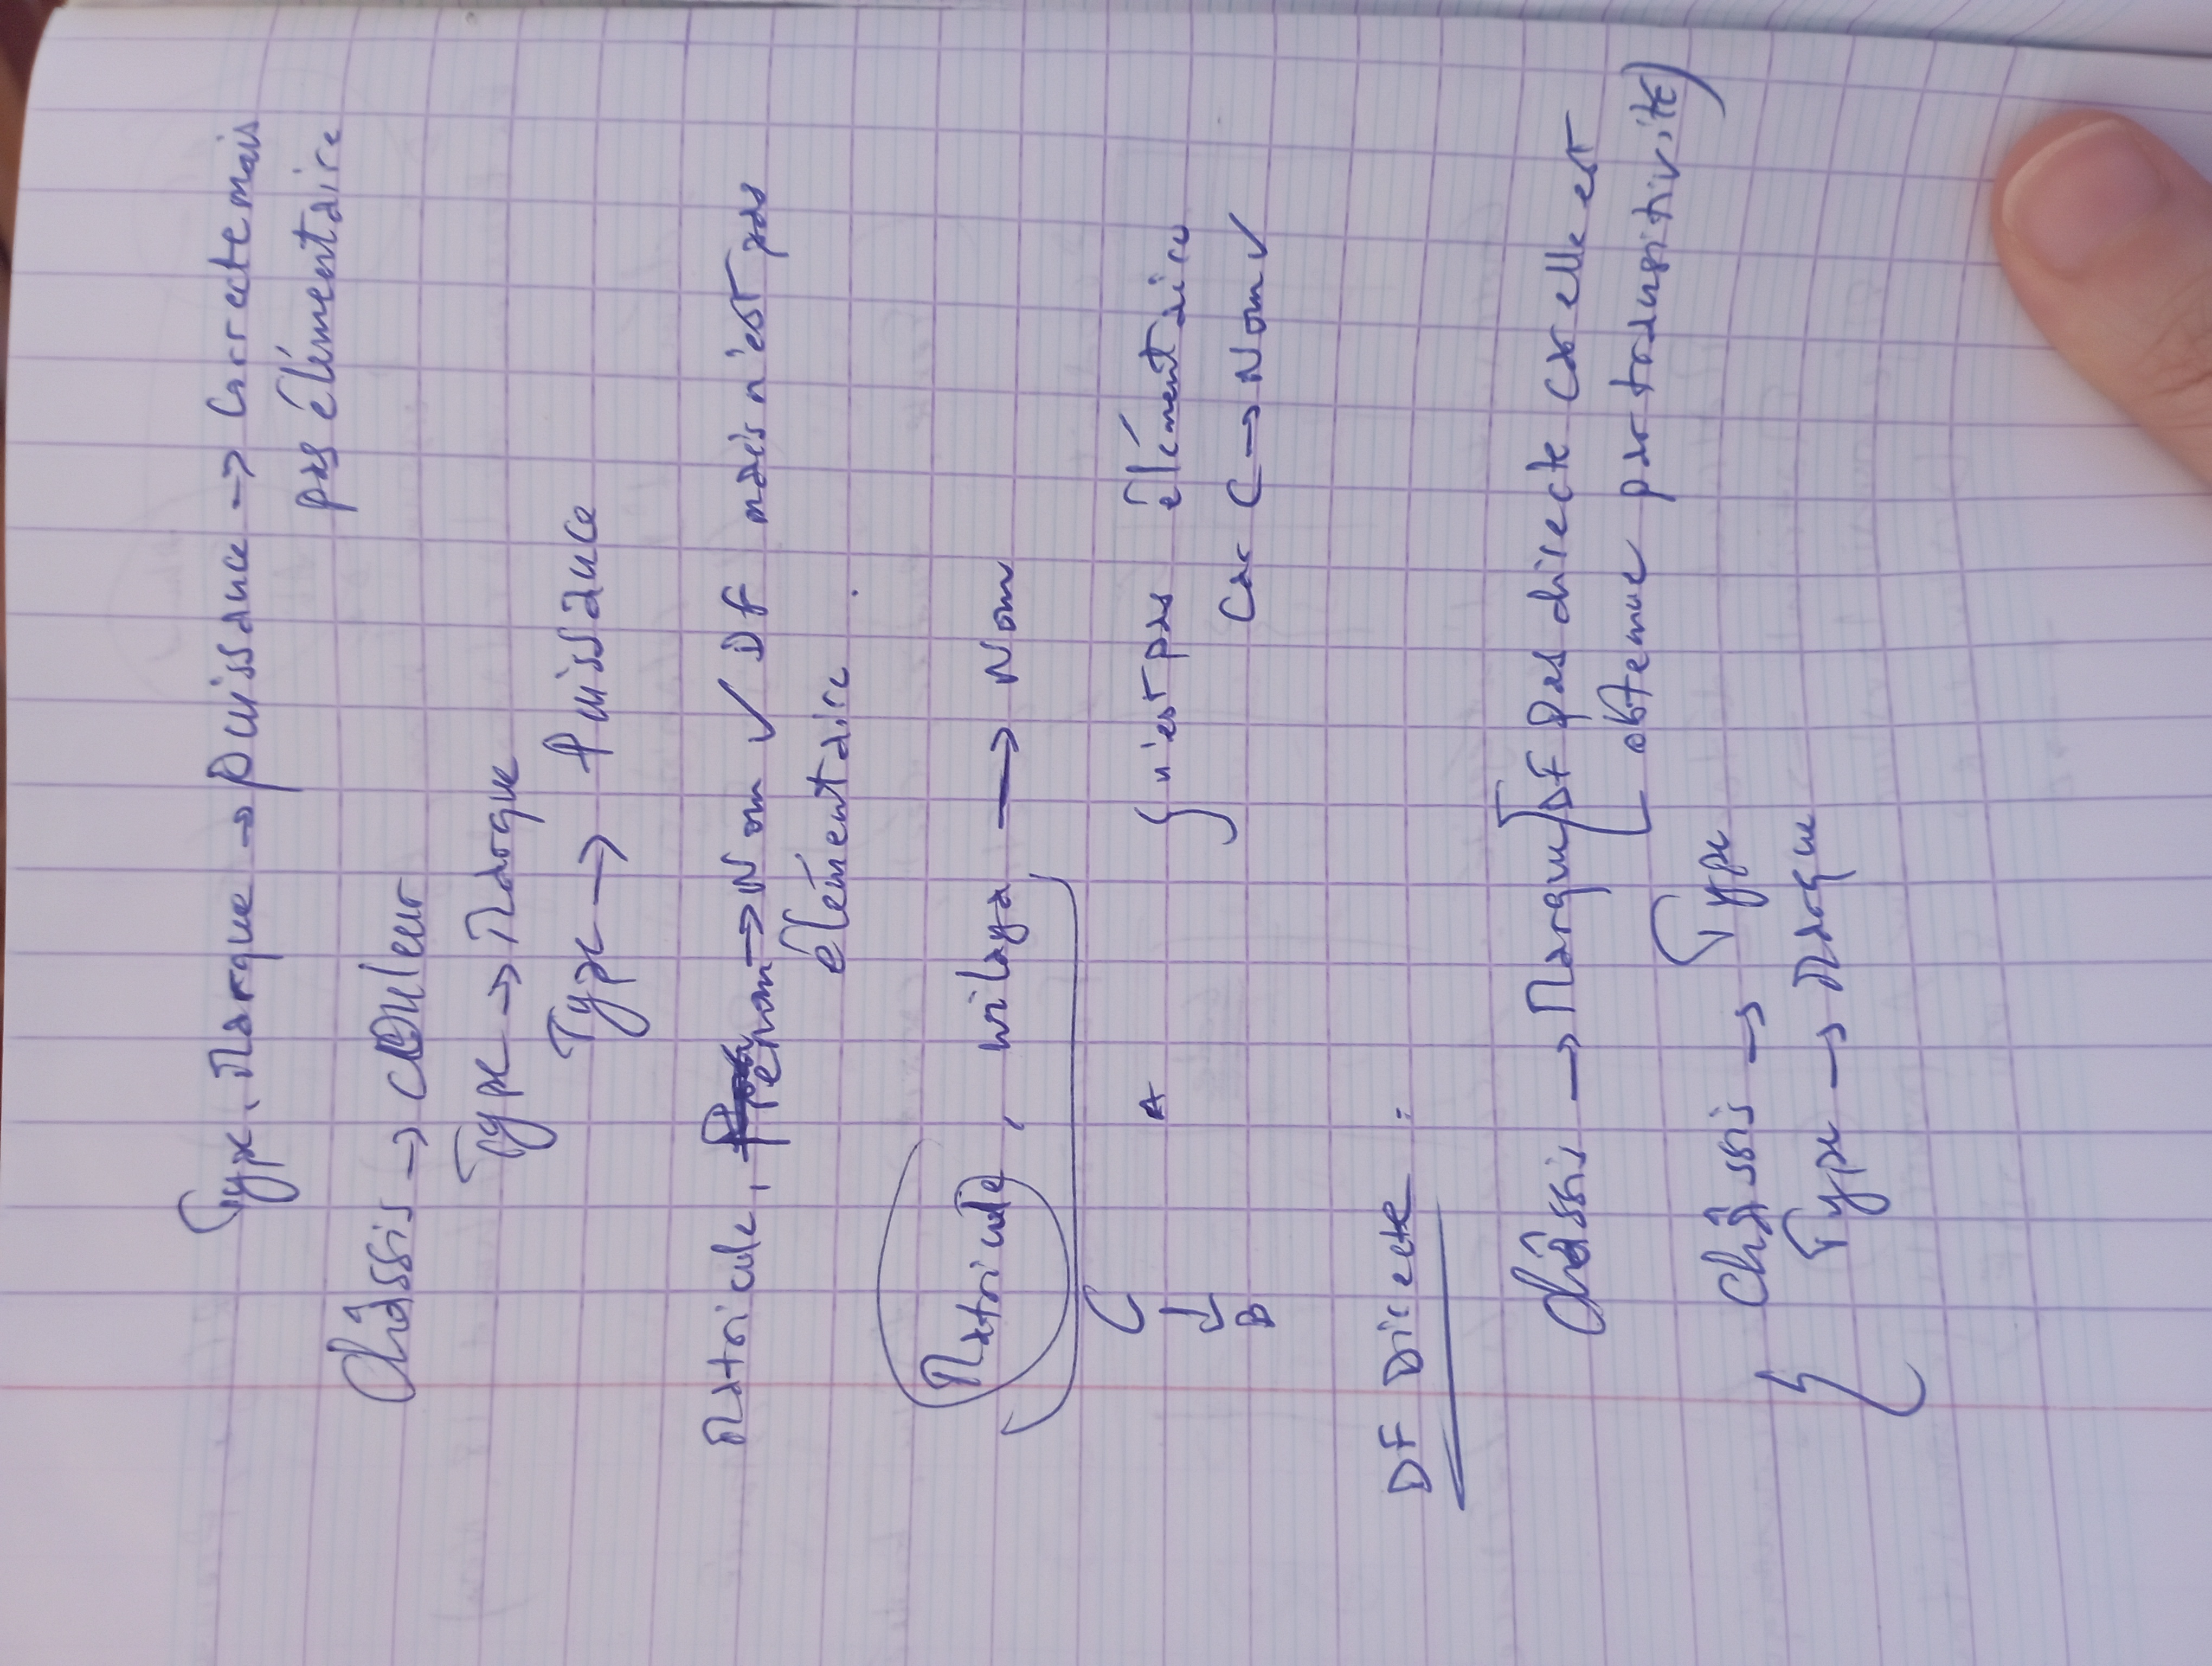 Type, Marque → puissance → Correcte mais
pas élémentaire
Châssis → couleur
Type → Marque
Type → Puissance
Matricule, Prénom → Nom ✓ DF mais n'est pas
élémentaire.
Matricule, wilaya → Nom
C
↓
B
A
{ n'est pas élémentaire
Car C → Nom ✓
DF Directe :
châssis → Marque [DF pas directe car elle est
obtenue par transitivité)
{ châssis → Type
Type → Marque